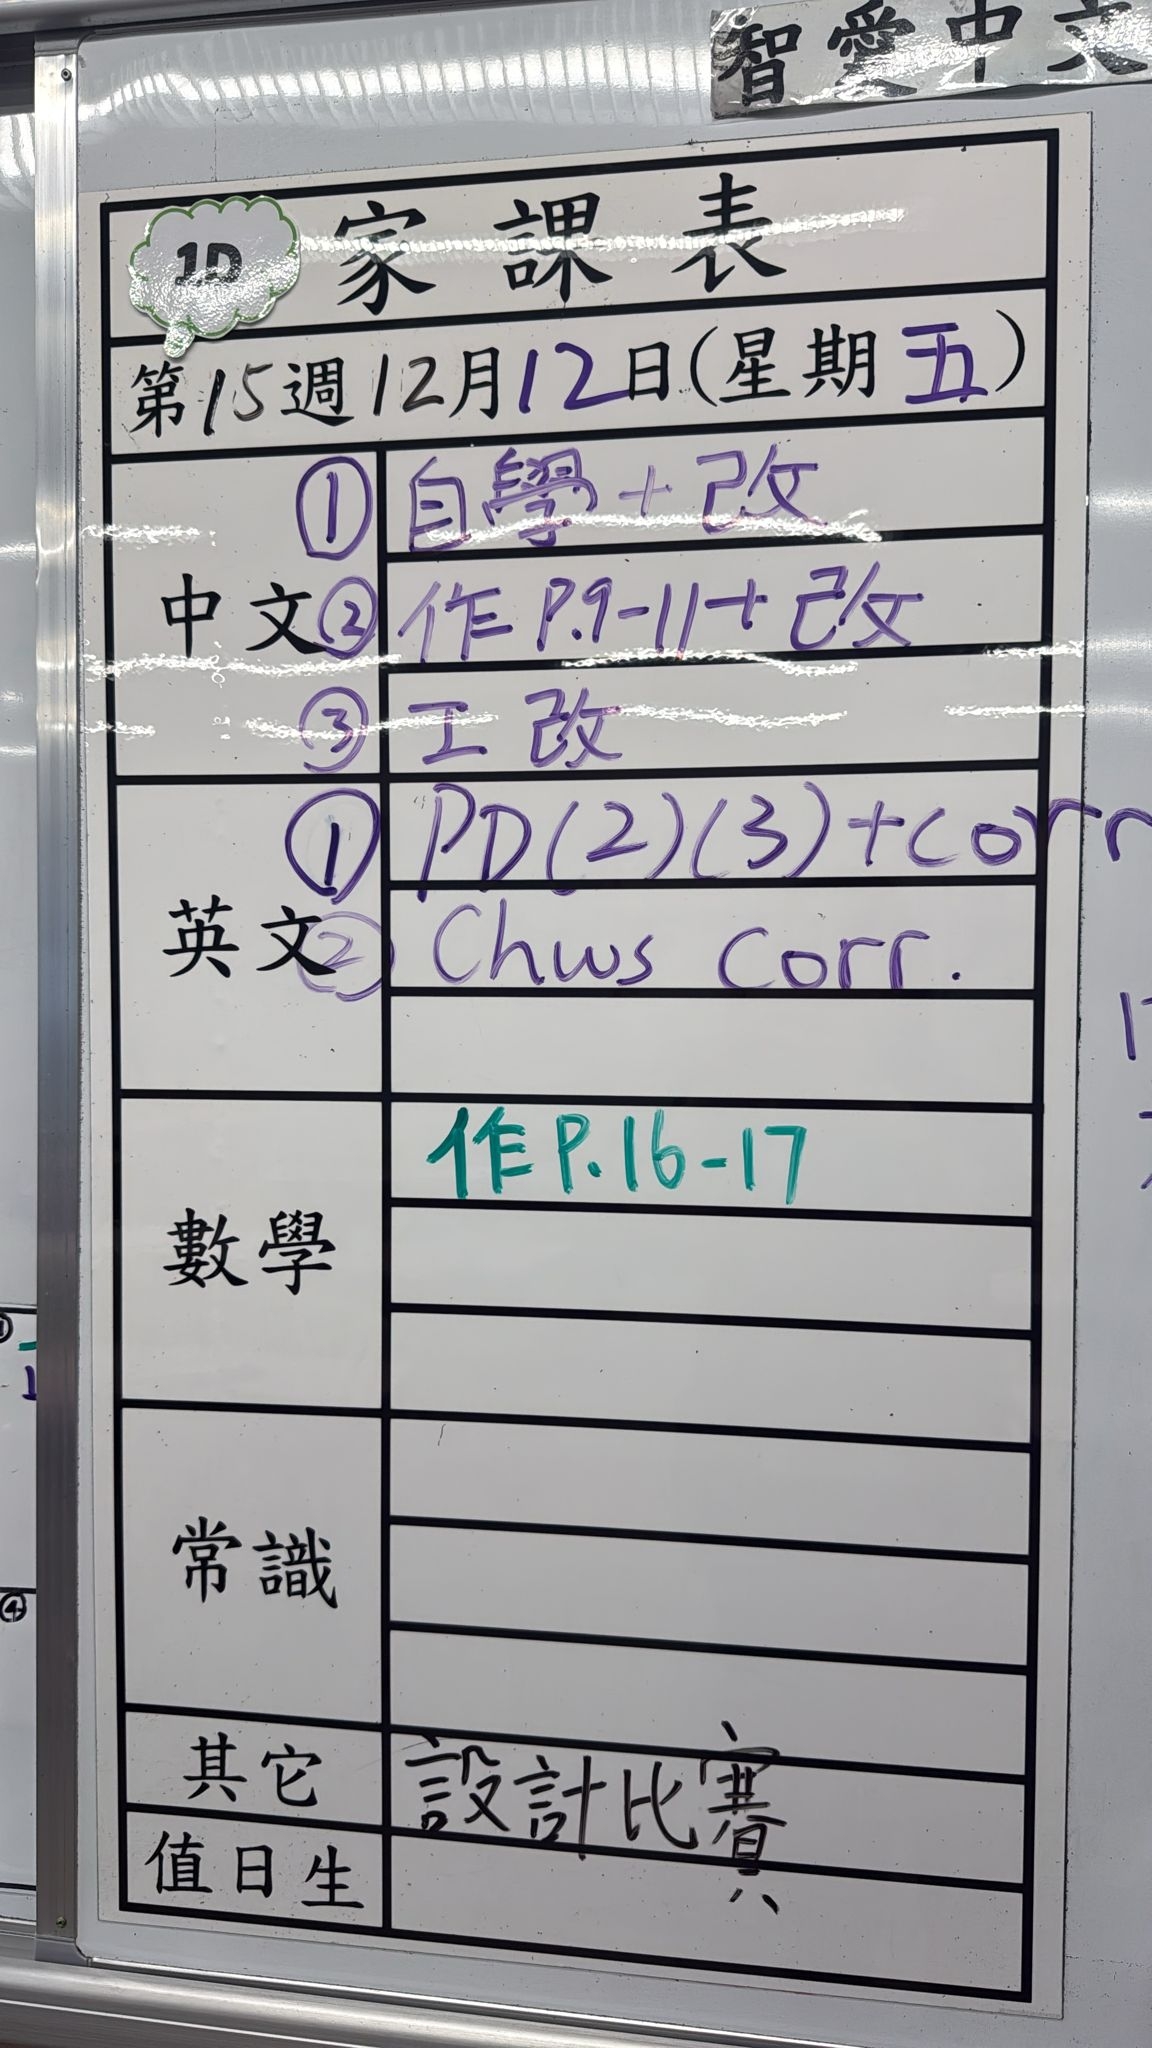 智愛中文
1D 家課表
第15週12月12日(星期五)
中文
① 自學+改
② 作P.9-11+改
③ 工改
英文
① PD(2)(3)+corr
② Chws corr.
數學
作P.16-17
常識
其它
設計比賽
值日生
④